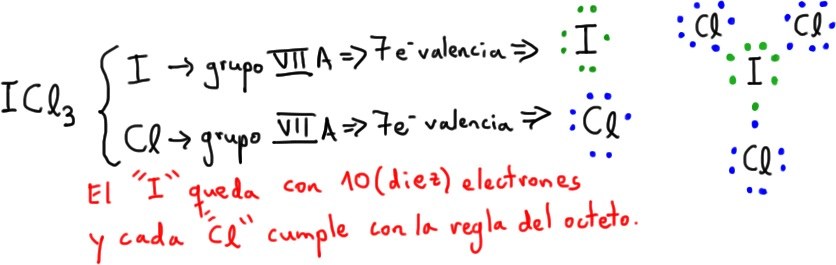 ICl₃
I → grupo VII A => 7e⁻ valencia => I
Cl → grupo VII A => 7e⁻ valencia => Cl
Cl Cl
I
Cl
El "I" queda con 10 (diez) electrones
y cada "Cl" cumple con la regla del octeto.